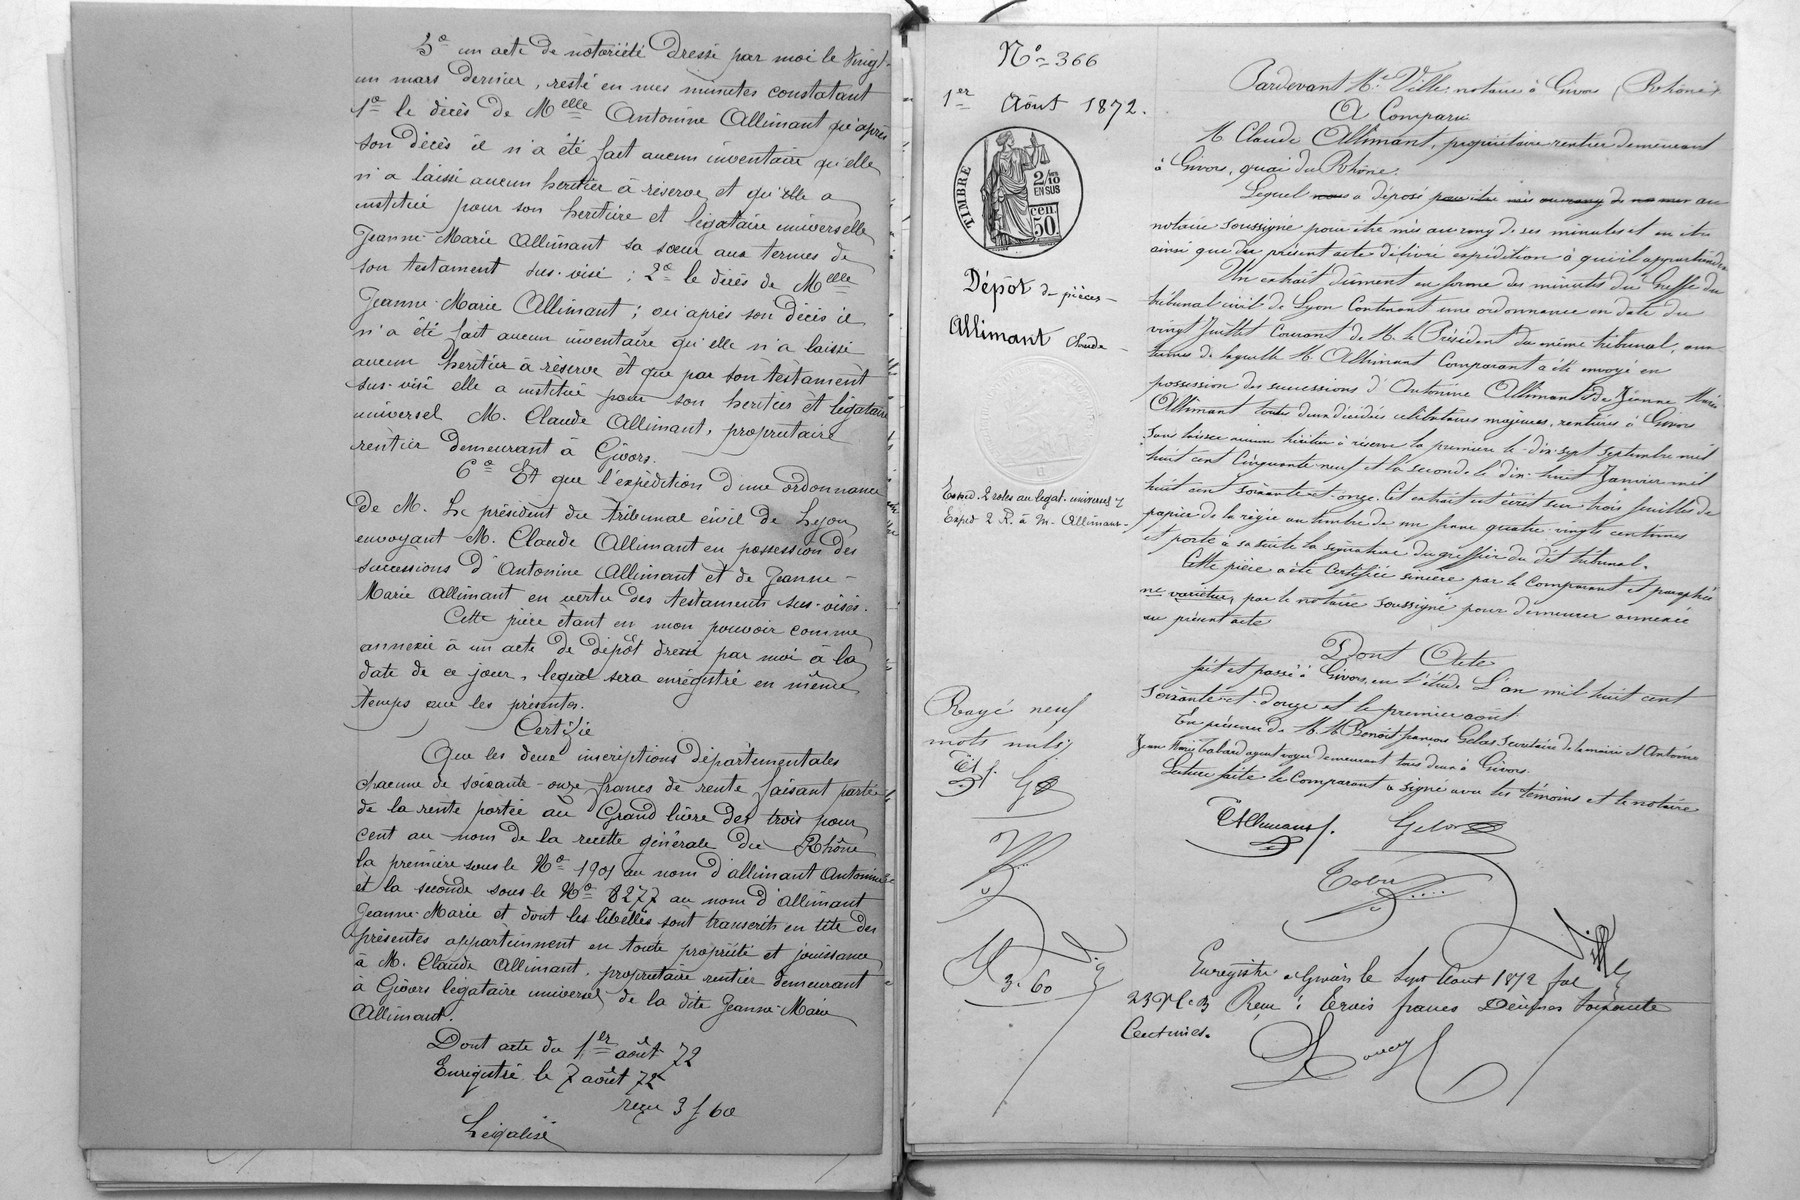 5º un acte de notoriété dressé par moi le vingt-
un mars dernier, resté en mes minutes constatant
1º le décès de Melle Antonine Allimant qu'après
son décès il n'a été fait aucun inventaire qu'elle
n'a laissé aucun héritier à réserve et qu'elle a
institué pour son héritière et légataire universelle
Jeanne-Marie Allimant sa sœur aux termes de
son testament sus-visé ; 2º le décès de Melle
Jeanne-Marie Allimant ; qu'après son décès il
n'a été fait aucun inventaire qu'elle n'a laissé
aucun héritier à réserve et que par son testament
sus-visé elle a institué pour son héritier et légataire
universel M. Claude Allimant, propriétaire
rentier demeurant à Givors.
6º Et que l'expédition d'une ordonnance
de M. Le président du tribunal civil de Lyon
envoyant M. Claude Allimant en possession des
successions d'Antonine Allimant et de Jeanne-
Marie Allimant en vertu des testaments sus-visés.
Cette pièce étant en mon pouvoir comme
annexée à un acte de dépôt dressé par moi à la
date de ce jour, lequel sera enregistré en même
temps que les présentes.
Certifie
Que les deux inscriptions départementales
chacune de soixante-onze francs de rente faisant partie
de la rente portée au Grand livre des trois pour
cent au nom de la recette générale du Rhône
la première sous le Nº 1901 au nom d'allimant Antonine
et la seconde sous le Nº 8277 au nom d'Allimant
Jeanne-Marie et dont les libellés sont transcrits en tête des
présentes appartiennent en toute propriété et jouissance
à M. Claude Allimant, propriétaire rentier demeurant
à Givors légataire universel de la dite Jeanne-Marie
Allimant.
Dont acte du 1er août 72
Enregistré le 7 août 72
reçu 3 f 60
Légalisé
Nº 366
1er Août 1872.
TIMBRE
2/10
EN SUS
50 cen.
Dépôt de pièces
Allimant Claude
Exped. 2 roles au legat. universel
Exped 2 R. à M. Allimant
Rayé neuf
mots nuls
3.60
Pardevant Me Ville notaire à Givors (Rhône)
A Comparu
M. Claude Allimant, propriétaire rentier demeurant
à Givors, quai du Rhône.
Lequel nous a déposé pour être mis au rang de au
notaire soussigné pour être mis au rang de ses minutes et en être
ainsi que du présent acte délivré expédition à qui il appartiendra
Un extrait dûment en forme des minutes du Greffe du
tribunal civil de Lyon Contenant une ordonnance en date du
vingt Juillet Courant de M. le Président du même tribunal, aux
termes de laquelle M. Allimant Comparant a été envoyé en
possession des successions d'Antonine Allimant & de Jeanne Marie
Allimant toutes deux décédées célibataires majeures, rentières à Givors
sans laisser aucun héritier à réserve la première le dix-sept septembre mil
huit cent Cinquante-neuf et la seconde le dix-huit Janvier mil
huit cent soixante-et-onze. Cet extrait est écrit sur trois feuilles de
papier de la régie au timbre de un franc quatre-vingts centimes
et porte à sa suite la signature du greffier du dit tribunal.
Cette pièce a été Certifiée sincère par le Comparant et paraphée
ne varietur par le notaire soussigné pour demeurer annexée
au présent acte
Dont Acte
fait et passé à Givors, en l'étude L'an mil huit cent
soixante-et-douze et le premier août
En présence de M.M. Benoit françois Gelas secrétaire de la mairie et Antoine
Jean Marie Tabard agent voyer demeurant tous deux à Givors.
Lecture faite le Comparant a signé avec les témoins et le notaire
Allimant
Gelas
Ville
Enregistré à Givors le Sept Août 1872 fol
23 Vº C. 3 Reçu : Trois francs Décimes soixante
Centimes.